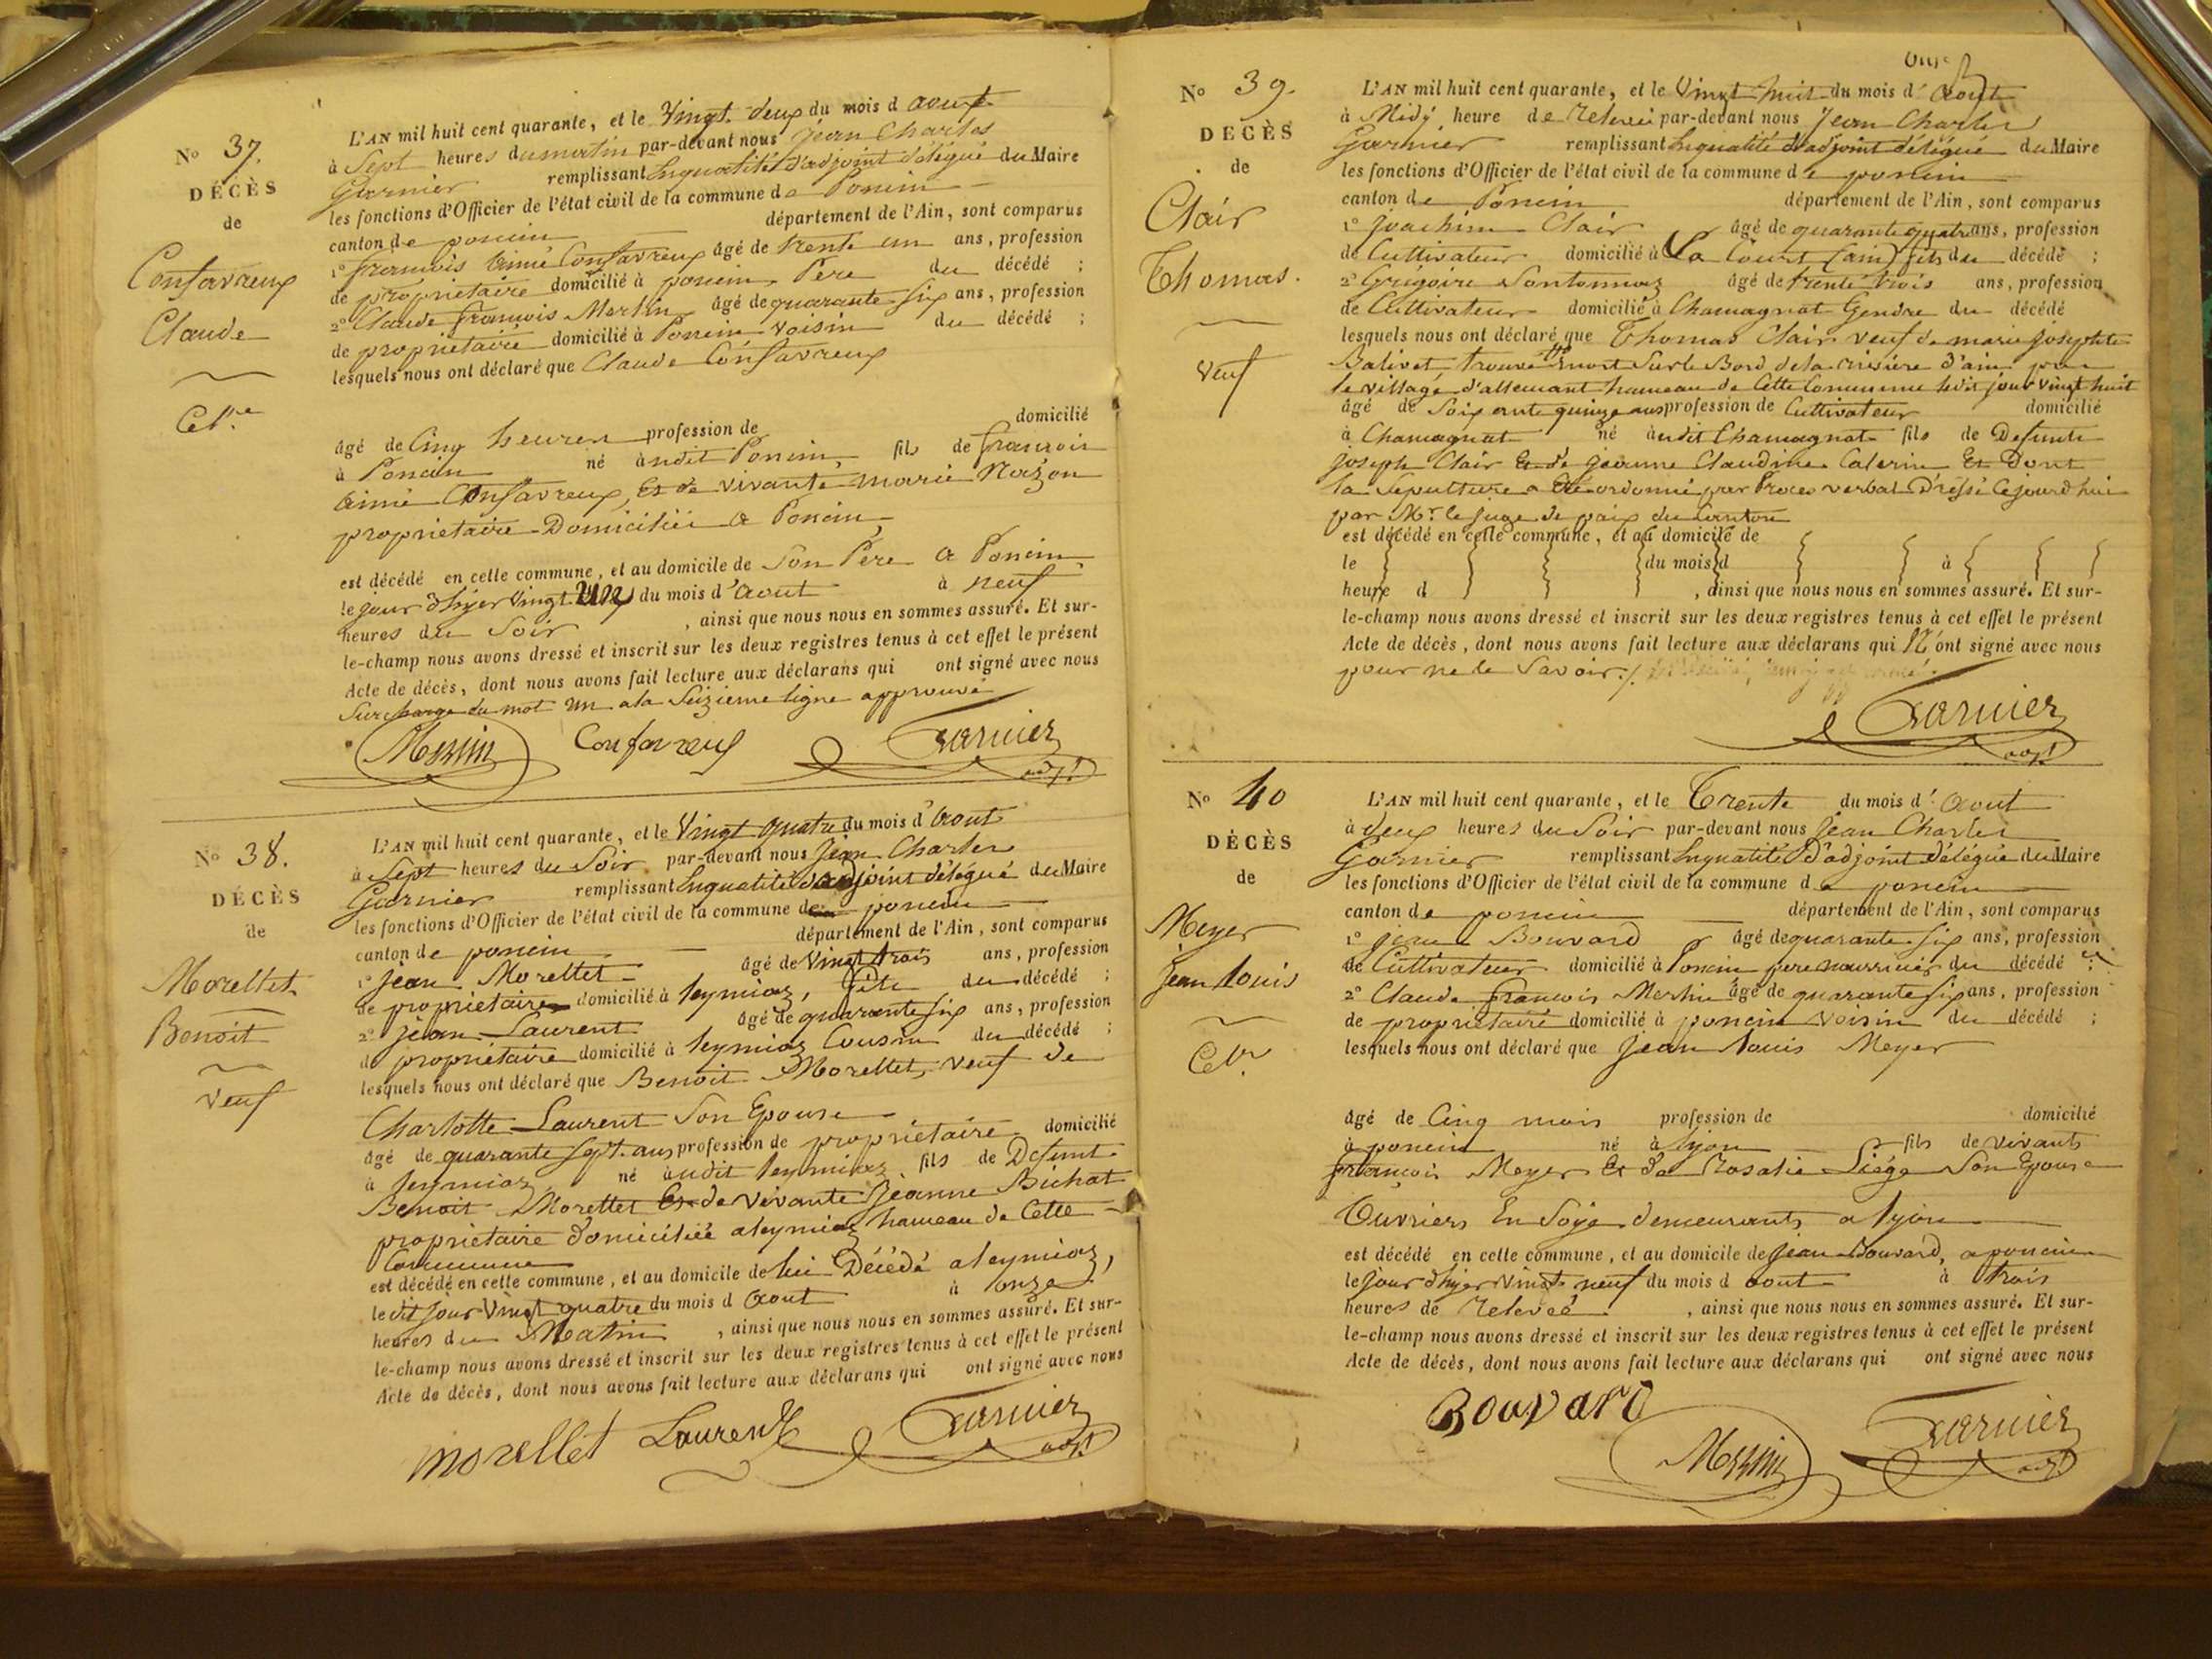 N° 37.
DÉCÈS
de
Confavreux
Claude
Cel.re
L'AN mil huit cent quarante, et le Vingt deux du mois d aout
à Sept heures du matin par-devant nous Jean Charles
Garnier remplissant Enqualité d'adjoint délégué du Maire
les fonctions d'Officier de l'état civil de la commune de Poncin
canton de poncin département de l'Ain, sont comparus
1° françois Aimé Confavreux âgé de trente un ans, profession
de propriétaire domicilié à poncin Père du décédé ;
2° Claude françois Merlin âgé de quarante six ans, profession
de propriétaire domicilié à Poncin voisin du décédé ;
lesquels nous ont déclaré que Claude Confavreux
âgé de Cinq heures profession de domicilié
à Poncin né audit Poncin, fils de françois
Aimé Confavreux, Et de vivante marie Nazon
propriétaire Domiciliée a Poncin,
est décédé en cette commune, et au domicile de Son Père a Poncin
le jour d'hyer Vingt un du mois d'aout à neuf
heures du Soir , ainsi que nous nous en sommes assuré. Et sur-
le-champ nous avons dressé et inscrit sur les deux registres tenus à cet effet le présent
Acte de décès, dont nous avons fait lecture aux déclarans qui ont signé avec nous
Surcharge du mot un a la Seizieme ligne approuvé
Merlin Confavreux Garnier
adjt
N° 38.
DÉCÈS
de
Morellet
Benoit
Veuf
L'AN mil huit cent quarante, et le Vingt quatre du mois d'Aout
à Sept heures du Soir par-devant nous Jean Charles
Garnier remplissant Enqualité d'adjoint délégué du Maire
les fonctions d'Officier de l'état civil de la commune de poncin
canton de poncin département de l'Ain, sont comparus
1° Jean Morellet âgé de Vingt trois ans, profession
de propriétaire domicilié à leymiaz, fils du décédé ;
2° Jean Laurent âgé de quarante six ans, profession
de propriétaire domicilié à leymiaz Cousin du décédé ;
lesquels nous ont déclaré que Benoit Morellet, veuf de
Charlotte Laurent Son Epouse
âgé de quarante sept ans profession de propriétaire domicilié
à leymiaz né audit leymiaz fils de Defunt
Benoit Morellet Et de vivante Jeanne Bichat
propriétaire domiciliée a leymiaz hameau de Cette
Commune
est décédé en cette commune, et au domicile de lui Décédé a leymiaz,
le dit jour Vingt quatre du mois d Aout à onze
heures du Matin , ainsi que nous nous en sommes assuré. Et sur-
le-champ nous avons dressé et inscrit sur les deux registres tenus à cet effet le présent
Acte de décès, dont nous avons fait lecture aux déclarans qui ont signé avec nous
morellet Laurent Garnier
adjt
N° 39.
DÉCÈS
de
Clair
Thomas.
Veuf
L'AN mil huit cent quarante, et le Vingt huit du mois d'Aout
à Midy heure de relevée par-devant nous Jean Charles
Garnier remplissant Enqualité d'adjoint délégué du Maire
les fonctions d'Officier de l'état civil de la commune de poncin
canton de Poncin département de l'Ain, sont comparus
1° Joachim Clair âgé de quarante quatre ans, profession
de Cultivateur domicilié à La Court (ain) fils du décédé ;
2° Grégoire Santonnaz âgé de trente trois ans, profession
de Cultivateur domicilié à Chamagnat Gendre du décédé
lesquels nous ont déclaré que Thomas Clair veuf de marie josephte
Balivet trouvé mort Sur le Bord de la rivière d'ain
le village d'allemant hameau de Cette Commune le dit jour vingt huit
âgé de Soixante quinze ans profession de Cultivateur domicilié
à Chamagnat né audit Chamagnat fils de Defunts
joseph Clair Et de jeanne Claudine Et Dont
la Sépulture a été ordonnée par Proces verbal Dressé Cejourd'hui
par Mr. le juge de paix du Canton
est décédé en cette commune, et au domicile de
le du mois d à
heure d , ainsi que nous nous en sommes assuré. Et sur-
le-champ nous avons dressé et inscrit sur les deux registres tenus à cet effet le présent
Acte de décès, dont nous avons fait lecture aux déclarans qui N'ont signé avec nous
pour ne le Savoir./.
Garnier
adjt
N° 40
DÉCÈS
de
Meyer
Jean Louis
L'AN mil huit cent quarante, et le Trente du mois d'Aout
à deux heures du Soir par-devant nous Jean Charles
Garnier remplissant Enqualité d'adjoint délégué du Maire
les fonctions d'Officier de l'état civil de la commune de poncin
canton de poncin département de l'Ain, sont comparus
1° Jean Bouvard âgé de quarante six ans, profession
de Cultivateur domicilié à Poncin pere nourricier du décédé ;
2° Claude françois Merlin âgé de quarante six ans, profession
de propriétaire domicilié à poncin voisin du décédé ;
lesquels nous ont déclaré que Jean Louis Meyer
âgé de Cinq mois profession de domicilié
à poncin né à lyon fils de vivants
françois Meyer Et de Rosalie Liége Son Epouse
Ouvriers En Soye demeurants a lyon
est décédé en cette commune, et au domicile de Jean Bouvard, a poncin
le jour d'hyer Vingt neuf du mois d aout à trois
heures de relevée , ainsi que nous nous en sommes assuré. Et sur-
le-champ nous avons dressé et inscrit sur les deux registres tenus à cet effet le présent
Acte de décès, dont nous avons fait lecture aux déclarans qui ont signé avec nous
Bouvard
Merlin Garnier
adjt